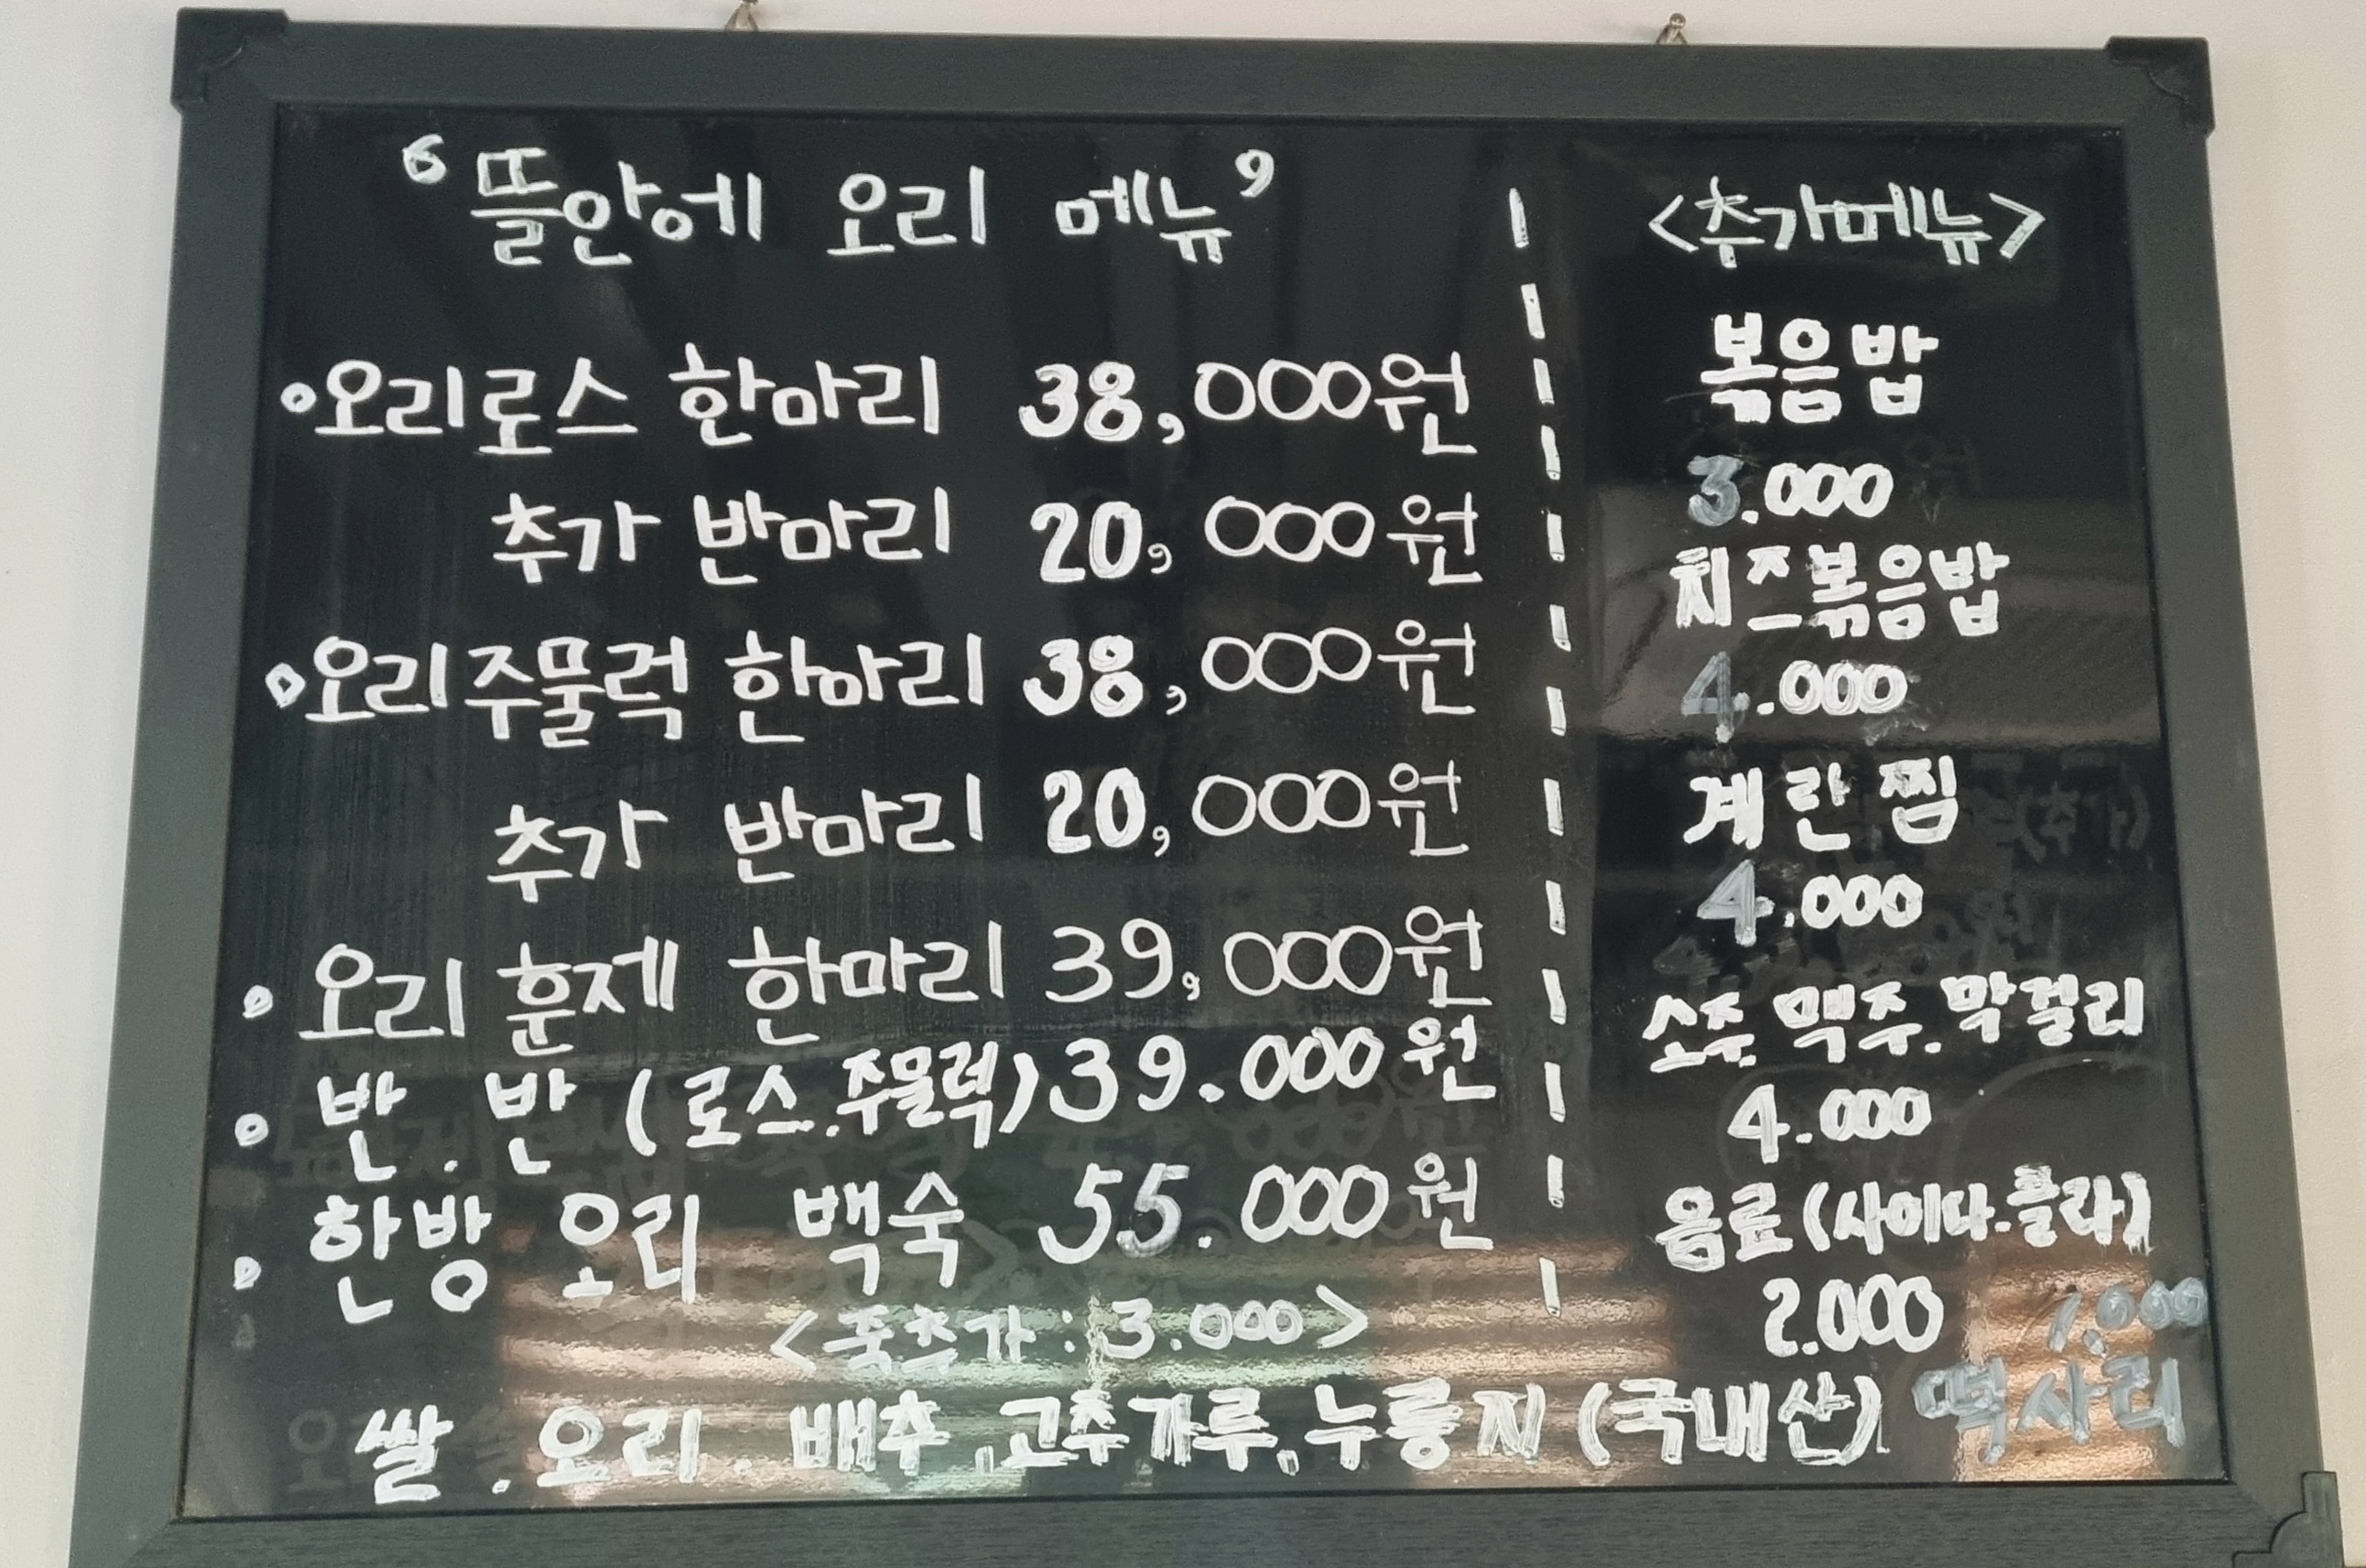 “뜰안에 오리 메뉴”
•오리로스 한마리 38,000원
추가 반마리 20,000원
•오리주물럭 한마리 38,000원
추가 반마리 20,000원
• 오리 훈제 한마리 39,000원
• 반.반 (로스.주물럭) 39.000원
• 한방 오리 백숙 55.000원
<죽추가:3.000>
<추가메뉴>
볶음밥
3.000
치즈볶음밥
4.000
계란찜
4.000
소주.맥주.막걸리
4.000
음료(사이다.콜라)
2.000
1.000
떡사리
쌀.오리.배추,고추가루,누룽지(국내산)